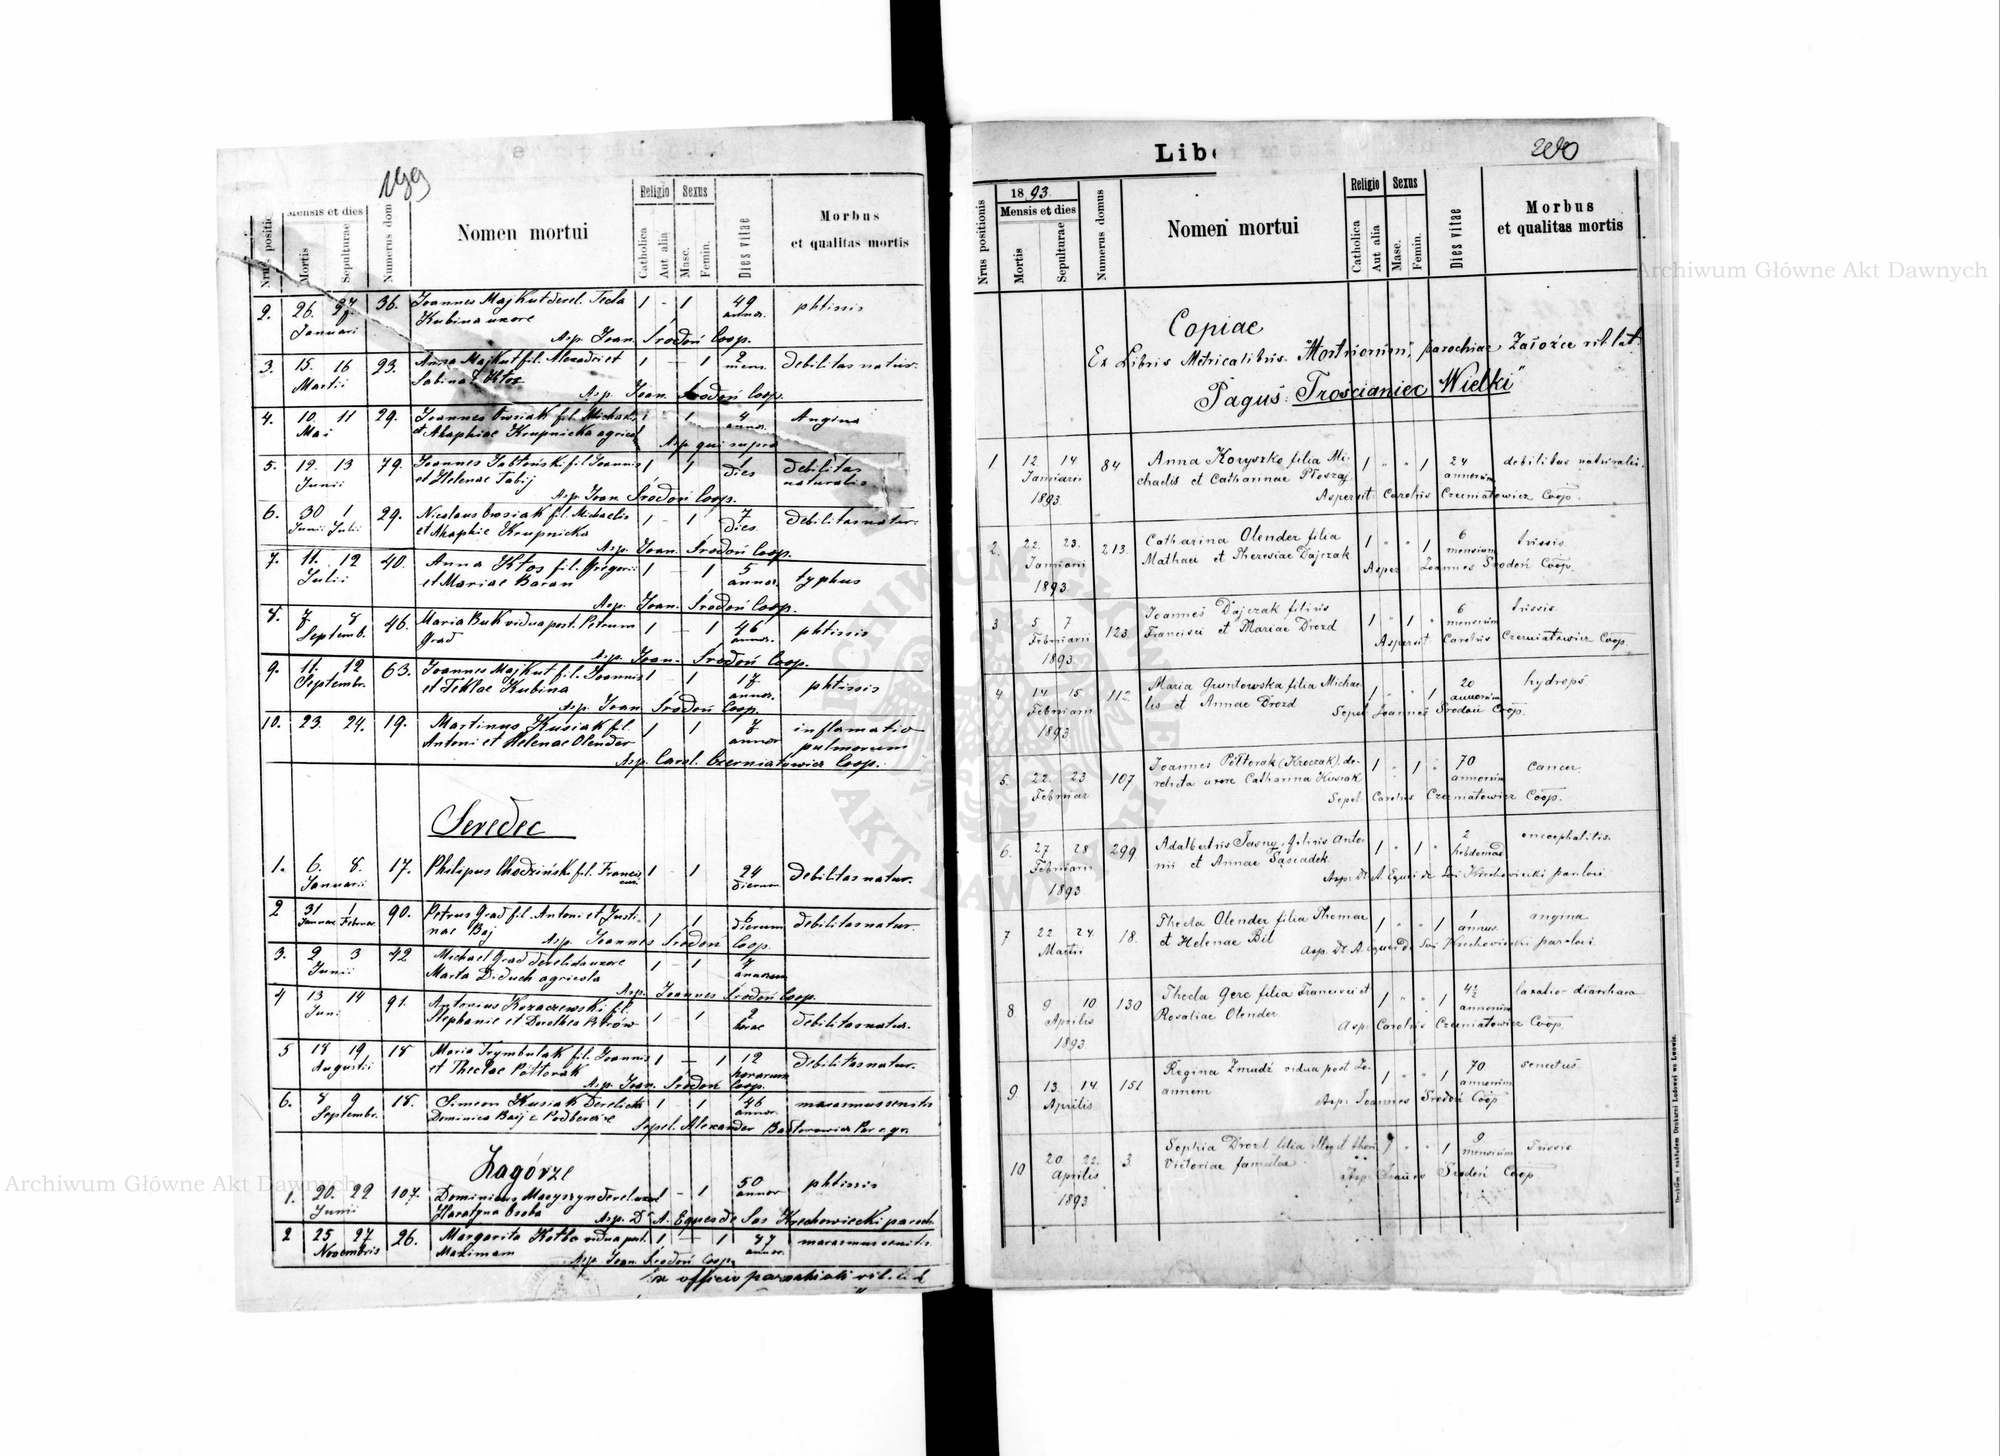 199
Nrus positio
Mensis et dies
Mortis
Sepulturae
Numerus dom
Nomen mortui
Religio
Catholica
Aut alia
Sexus
Masc.
Femin.
Dies vitae
Morbus
et qualitas mortis
2. 26. 27. 36. Joannes Majkut derel. Tecla 1 - 1 49 phtissis
Januari Kubina uxore annor.
Asp. Joan. Środoń Coop.
3. 15. 16 93. Anna Majkut fil. Alexadri et 1 - 1 2 debilitas natur.
Martii Sabina Kłos mens.
Asp. Joan. Środoń Coop.
4. 10. 11 29. Joannes Owsiak fil. Michaelis 1 - 1 4 Angina
Mai et Ahaphiae Krupnicka agricol annor.
Asp. qui supra
5. 12. 13 79. Joannes Jabłoński fil. Joannis 1 1 1 debilitas
Junii et Helenae Tabij dies naturalis
Asp. Joan Środoń Coop.
6. 30 1 29. Nicolaus Owsiak fil. Michaelis 1 - 1 7 debilitas natur.
Junii Julii et Ahaphie Krupnicka dies
Asp. Joan. Środoń Coop.
7. 11. 12 40. Anna Kłos fil. Gregorii 1 - 1 5 typhus
Julii et Mariae Baran annor.
Asp. Joan. Środoń Coop.
8. 7. 8 46. Maria Buk vidua post. Petrum 1 - 1 46 phtissis
Septemb. Grad annor.
Asp. Joan. Środoń Coop.
9. 11. 12 63. Joannes Majkut fil. Joannis 1 - 1 17 phtissis
Septembr. et Teklae Kubina annor.
Asp. Joan Środoń Coop.
10. 23. 24. 19. Martinus Kusiak fil. 1 1 7 inflamatio
Antoni et Helenae Olender annor pulmorum
Asp. Carol. Czerniatowicz Coop.
Seredec
1. 6. 8. 17. Philipus Chodziński fil. Francis 1 - 1 24 debilitas natur.
Januarii dierum
2 31 1 90. Petrus Grad fil. Antoni et Justi- 1 1 6 debilitas natur.
Januar Februar. nae Baj dierum
Asp. Joannes Środoń Coop.
3. 2 3 42 Michael Grad derelicta uxore 1 - 1
Junii Marta Diduch agricola annorum
Asp. Joannes Środoń Coop.
4 13 14 91. Antonius Kozaczewski fil. 1 - 1 2 debilitas natur.
Juni Stephanie et Dorothea horae
5 18 19 18 Maria Trymbulak fil. Joannis 1 - 1 12 debilitas natur.
Augustii et Theclae Półtorak horarum
Asp. Joan. Środoń Coop.
6. 8 9 18. Simeon Kusiak derelicta 1 - 1 46 marasmus senilis
Septembr. Dominica Baij e Podberezce annor.
Sepel. Alexander
Zagórze
1. 20. 22 107. Dominicus derel. uxor 1 - 1 50 phtissis
Junii annor
Asp. Dr. A. Eques de Sas Krechowiecki paroch.
2 25 27 26. Margarita Kotła vidua post. 1 - 1 77 marasmus senilis
Novembris Maximam annor.
Asp. Joan. Środoń Coop.
Ex officio parochiali rit. lat
200
Libe
1893.
Nrus positionis
Mensis et dies
Mortis
Sepulturae
Numerus domus
Nomen mortui
Religio
Catholica
Aut alia
Sexus
Masc.
Femin.
Dies vitae
Morbus
et qualitas mortis
Copiae
Ex Libris Metricalibus "Mortuorum", parochiae Załoźce rit. lat.
Pagus: Trościaniec Wielki"
1 12 14 84 Anna Koryszko filia Mi- 1 " " 1 24 debilitas naturalis.
Januarii chaelis et Catharinae Płoszaj annorum
1893 Aspersit Carolus Czerniatowicz Coop.
2. 22. 23. 213. Catharina Olender filia 1 " " 1 6 tussis.
Januarii Mathaei et Theresiae Dajczak mensium
1893 Asper Joannes Środoń Coop.
3 5 7 123. Joannes Dajczak filius 1 " 1 " 6 tussis
Februarii Francisci et Mariae Drozd mensium
1893 Aspersit Carolus Czerniatowicz Coop.
4 14 15 112 Maria Gruntowska filia Michae- 1 " " 1 20 hydrops
Februarii lis et Annae Drozd annorum
1893 Sepel. Joannes Środoń Coop.
5. 22. 23 107 Joannes Półtorak (Kroczak) de- 1 " 1 " 70 cancer
Februar. relicta uxore Catharina Kusiak annorum
Sepel. Carolus Czerniatowicz Coop.
6. 27 28 299 Adalbertus Jasny filius Anto- 1 " 1 " 2 encephalitis.
Februarii nii et Annae Sąsiadek hebdomad
1893 Asp. Dr. A. Eques de Sas Krechowiecki par. loci.
7 22. 24. 18. Thecla Olender filia Thomae 1 " " 1 1 angina
Martii et Helenae Bil annus.
Asp. Dr. A. Eques de Sas Krechowiecki par. loci
8 9 10 130 Thecla Gerc filia Francisci et 1 " " 1 4½ laxatio-diarrhaea
Aprilis Rosaliae Olender annorum
1893 Asp. Carolus Czerniatowicz Coop.
9 13. 14 151 Regina Żmudź vidua post Jo- 1 " " 1 70 senectus
Aprilis annem annorum
Asp. Joannes Środoń Coop
10 20. 22. 3. Sophia Drozd filia illegit. thori 1 " " 1 9 Tussis
Aprilis Victoriae famulae mensium
1893 Asp. Joannes Środoń Coop
Drukiem i nakładem Drukarni Ludowej we Lwowie.
Archiwum Główne Akt Dawnych
Archiwum Główne Akt Dawnych
ARCHIWUM GŁÓWNE AKT DAWNYCH